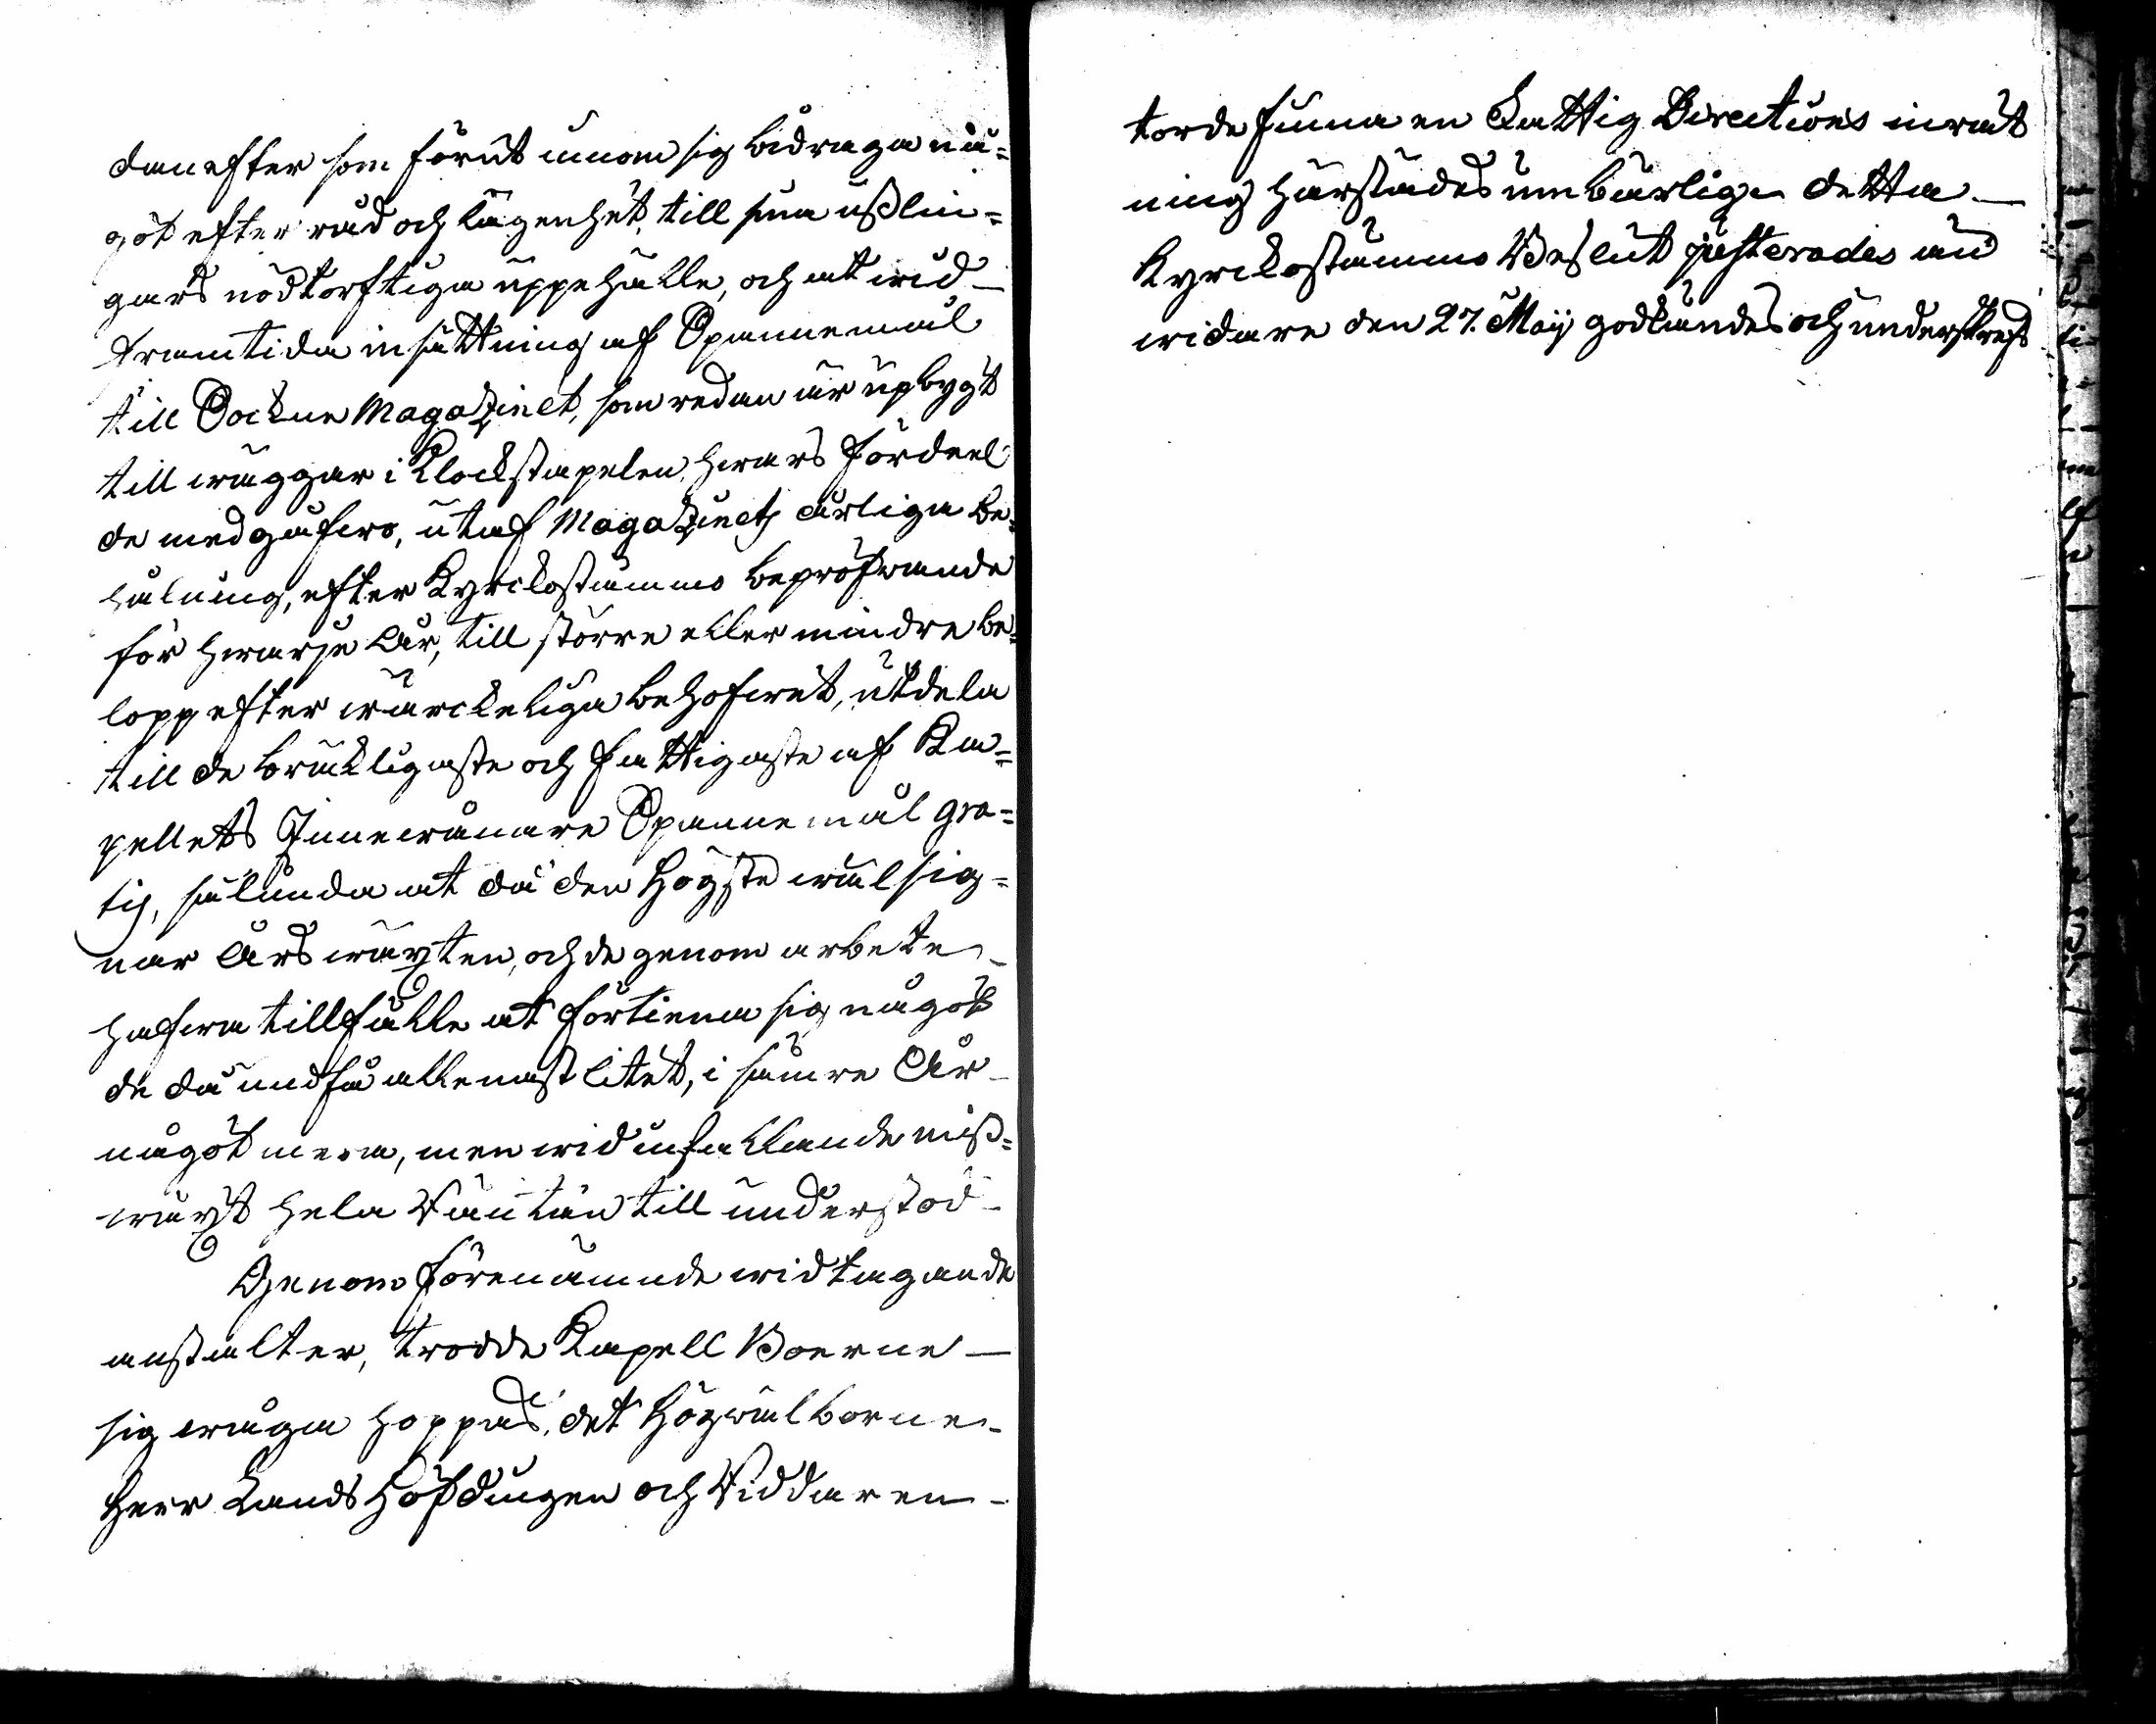 dan efter som förut innom sig bidraga nå=
got efter råd och lägenhet, till sina ußlin=
gars nödtorftiga uppehälle, och at wid
framtida insättning af Spannemål
till Sockne Magazinet, som redan är upbygt
till wäggar i Klockstapelen, hwars fördeel
de medgåfwo, utaf Magazinets årliga be=
hålning, efter Kyrckostämmo bepröfwande
för hwarje år, till större eller mindre be=
lopp efter wärckeliga behofwet, utdela
till de bräckligaste och fattigaste af Ka=
pellets Innewånare Spannemål gra=
tis, sålunda at då den Högste wälsig=
nar Årswäxten, och de genom arbete
hafwa tillfälle at förtiena sig något
de då undfå allenast litet, i sämre År
något mera, men wid infallande miß=
wäxt hela Räntan till understöd
Genom förenämnde widtagande
anstalter, trodde Kapell Boerne
sig wåga hoppas, det Högwälborne
Herr Lands Höfdingen och Riddaren
torde finna en Fattig Directions inrät
ning härstädes umbärlig. detta
Kyrckostämmo Beslut justerades än
widare den 27. Maij godkändes och underskrefs